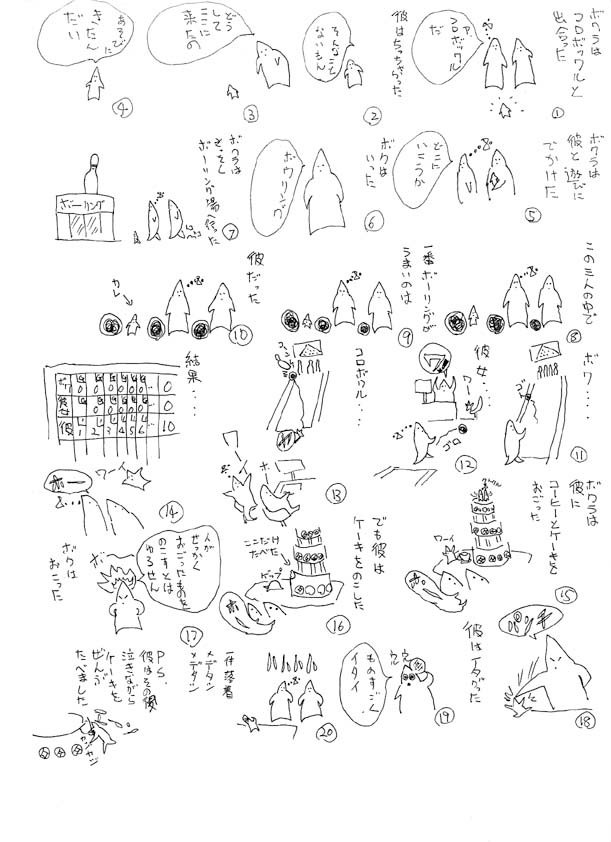 ボクラは
コロボックルと
出合った
コロボックル
だ
①
そんなこと
ないもん
彼はちっちゃかった
②
どう
して
ここに
来たの
③
あそびに
きたん
だい
④
ボクラは
彼と遊びに
でかけた
どこに
いこうか
⑤
ボクは
いった
ボウリング
⑥
ボクラは
さっそく
ボーリング場へ行った
ボーリング
⑦
この三人の中で
⑧
一番ボーリングが
うまいのは
⑨
彼だった
カレ
⑩
ボク・・・・
⑪
彼女・・・
ワーイ
ゴロ
⑫
コロボックル・・・
⑬
ワーイ
結果・・・・
ボク
彼女
彼
1 2 3 4 5 6
0
0
10
ワーイ
ホー
⑭
ボクラは
彼に
コーヒーとケーキを
おごった
ワーイ
⑮
でも彼は
ケーキをのこした
ここだけ
たべた
ゲップ
⑯
人が
せっかく
おごったものを
のこすとは
ゆるせん
ボクは
おこった
⑰
⑱
彼はイタがった
ものすごく
イタイ
⑲
一件落着
メデタシ
メデタシ
⑳
P.S.
彼はその後
泣きながら
ケーキを
ぜんぶ
たべました